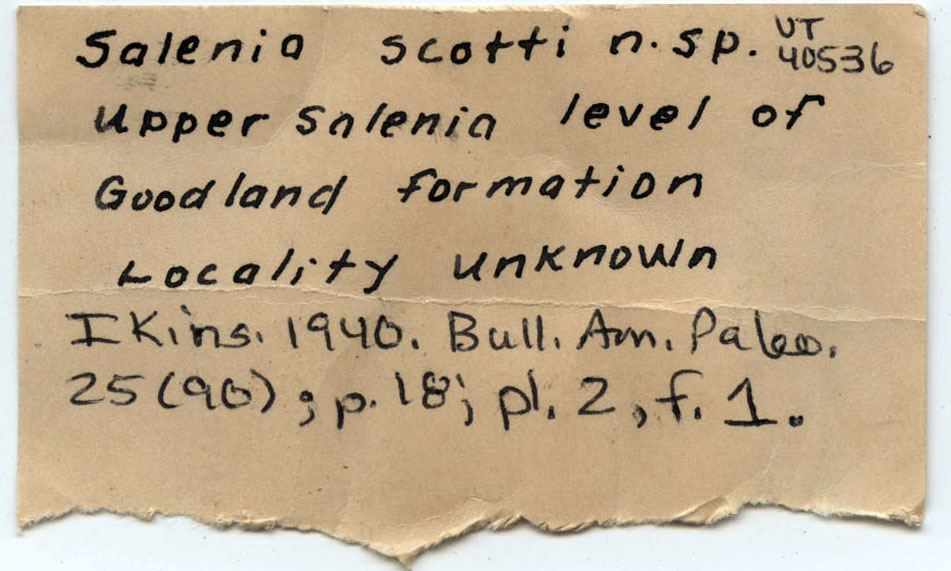 Salenia scotti n.sp. UT 40536
Upper Salenia level of
Goodland formation
Locality unknown
Ikins. 1940. Bull. Am. Paleo.
25(90); p. 18; pl. 2, f. 1.